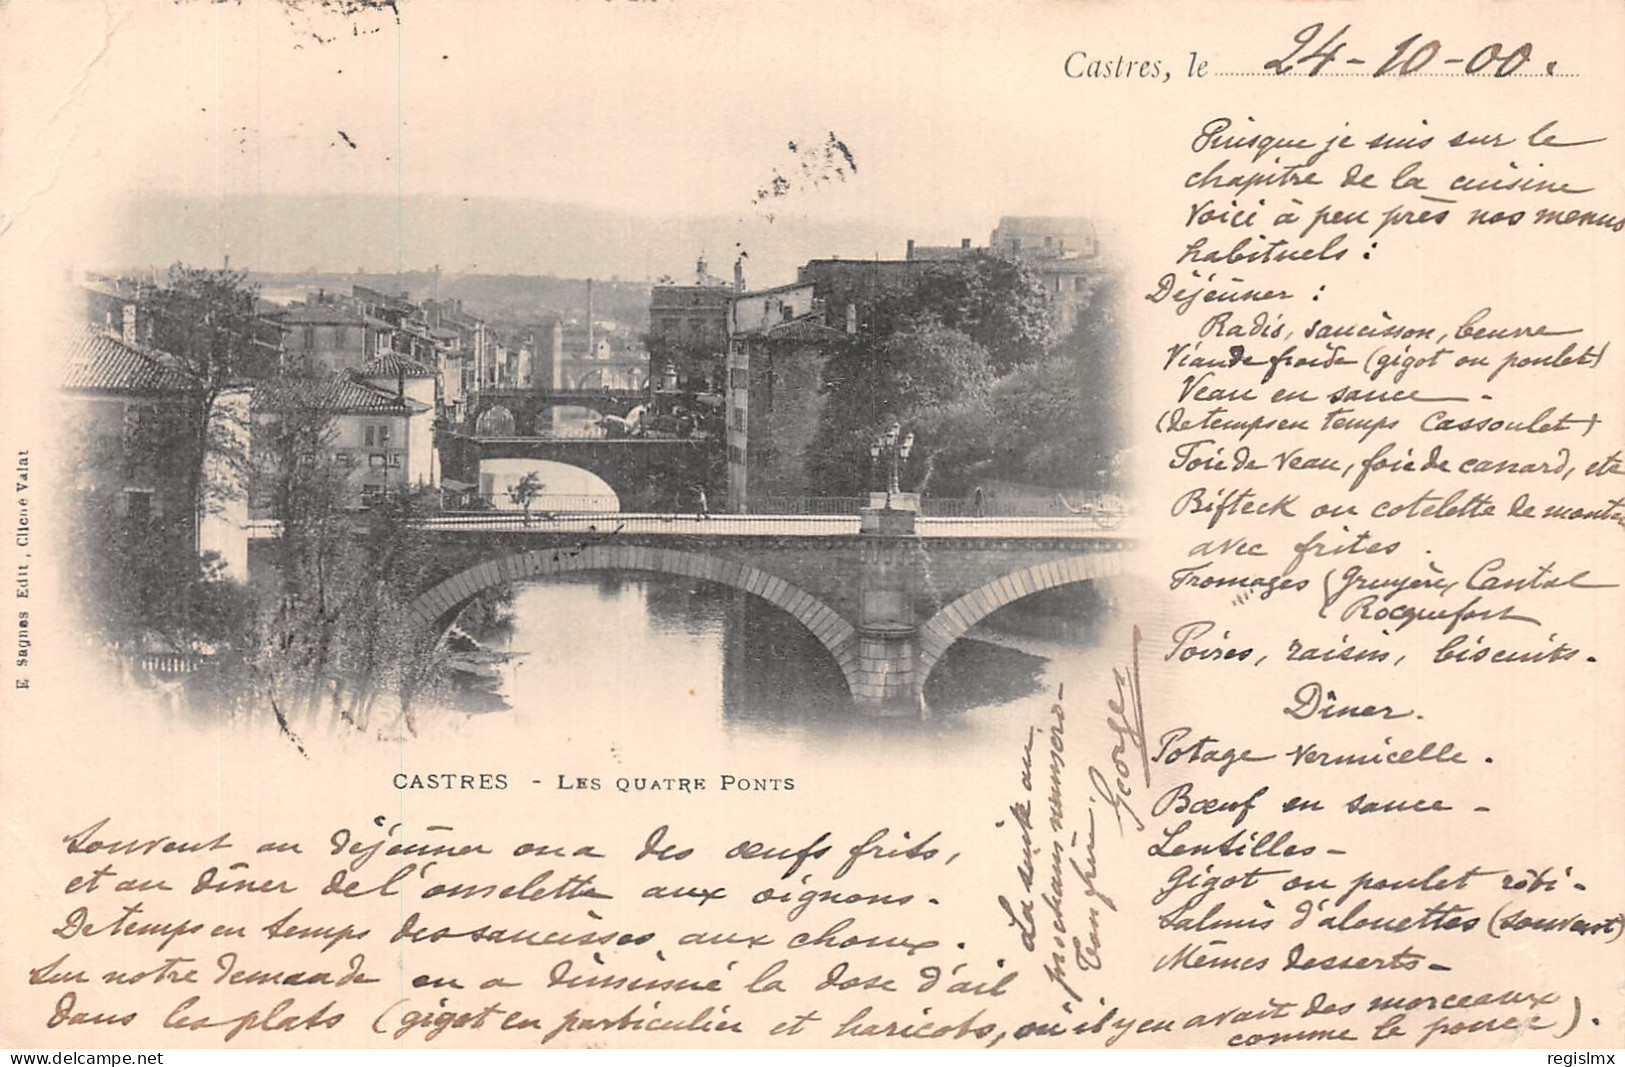 Castres, le 24-10-00.
Puisque je suis sur le
chapitre de la cuisine
voici à peu près nos menus
habituels :
Déjeûner :
Radis, saucisson, beurre
Viande froide (gigot ou poulet)
Veau en sauce -
(de temps en temps Cassoulet)
Foie de veau, foie de canard, etc
Bifteck ou cotelette de mouton
avec frites.
Fromages (Gruyère, Cantal
(Rocquefort
Poires, raisin, biscuits.
Dîner.
Potage vermicelle.
Bœuf en sauce -
Lentilles -
Gigot ou poulet rôti -
Salmis d'alouettes (souvent)
Mêmes desserts -
CASTRES - LES QUATRE PONTS
E. Sagnes Edit, Cliché Valat
Souvent au déjeûner on a des œufs frits,
et au dîner de l'omelette aux oignons.
De temps en temps des saucisses aux choux.
Sur notre demande on a diminué la dose d'ail
dans les plats (gigot en particulier et haricots, où il y en avait des morceaux
comme le pouce).
La suite au
prochains numéro -
Ton frère.
Georges
regislmx